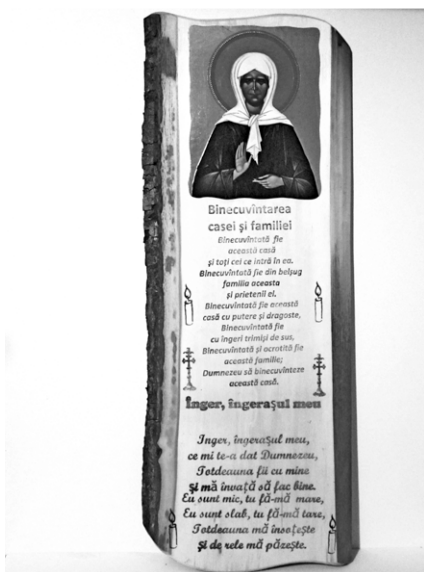 Binecuvîntarea
casei și familiei
Binecuvîntată fie
această casă
și toți cei ce intră în ea.
Binecuvîntată fie din belșug
familia aceasta
și prietenii ei.
Binecuvîntată fie această
casă cu putere și dragoste,
Binecuvîntată fie
cu îngeri trimiși de sus,
Binecuvîntată și ocrotită fie
această familie;
Dumnezeu să binecuvînteze
această casă.
Înger, îngerașul meu
Înger, îngerașul meu,
ce mi te-a dat Dumnezeu,
Totdeauna fii cu mine
și mă învață să fac bine.
Eu sunt mic, tu fă-mă mare,
Eu sunt slab, tu fă-mă tare,
Totdeauna mă însoțește
și de rele mă păzește.